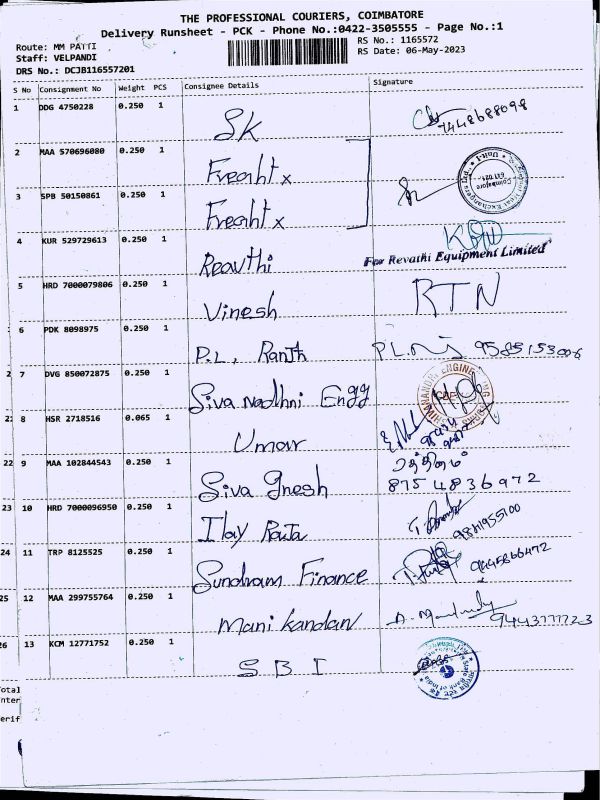 THE PROFESSIONAL COURIERS, COIMBATORE
Delivery Runsheet - PCK - Phone No.:0422-3505555 - Page No.:1
Route: MM PATTI
Staff: VELPANDI
DRS No.: DCJB116557201
RS No.: 1165572
RS Date: 06-May-2023
S No Consignment No Weight PCS Consignee Details Signature
1 DDG 4750228 0.250 1
SK
2 MAA 570696080 0.250 1
3 SPB 50150861 0.250 1
4 KUR 529729613 0.250 1
Reavthi
For Revathi Equipment Limited
5 HRD 7000079806 0.250 1
Vinesh RTN
6 PDK 8098975 0.250 1
P.L, Ranth
2 7 DVG 850072875 0.250 1
Siva Nadhni Engg
8 HSR 2718516 0.065 1
Umar
22 9 MAA 102844543 0.250 1
Siva Gnesh 8754836972
23 10 HRD 7000096950 0.250 1
24 11 TRP 8125525 0.250 1
Sundram Finance 9445866472
25 12 MAA 299755764 0.250 1
Mani kandan
26 13 KCM 12771752 0.250 1
SBI
State Bank of India
otal
nter
erif